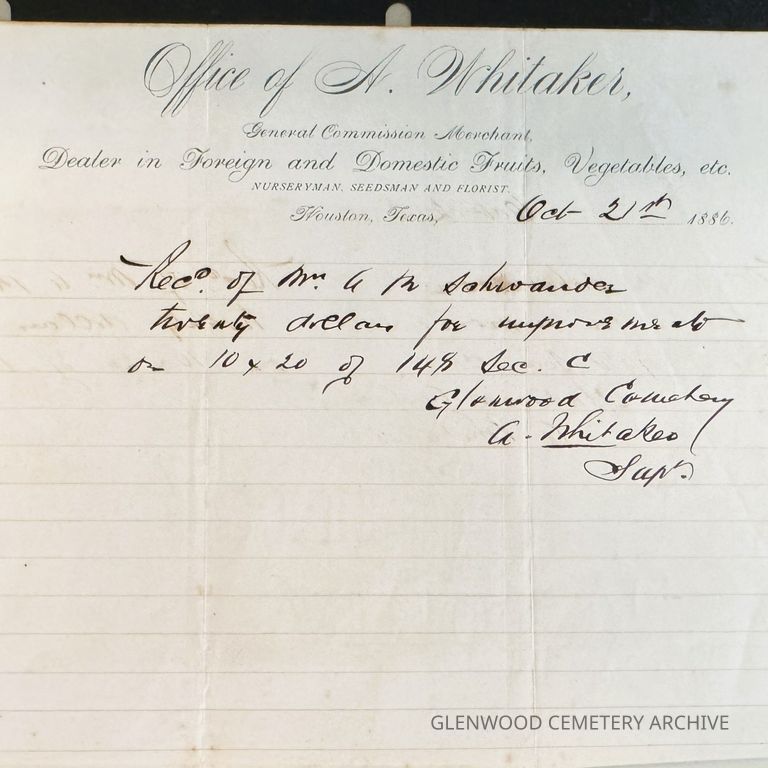 Office of A. Whitaker,
General Commission Merchant,
Dealer in Foreign and Domestic Fruits, Vegetables, etc.
NURSERYMAN, SEEDSMAN AND FLORIST.
Houston, Texas, Oct 21st 1886.
Recd. of Mr. A R Schwander
twenty dollars for improvements
on 10 x 20 of 148 Sec. C
Glenwood Cemetery
A. Whitaker
Supt.
GLENWOOD CEMETERY ARCHIVE